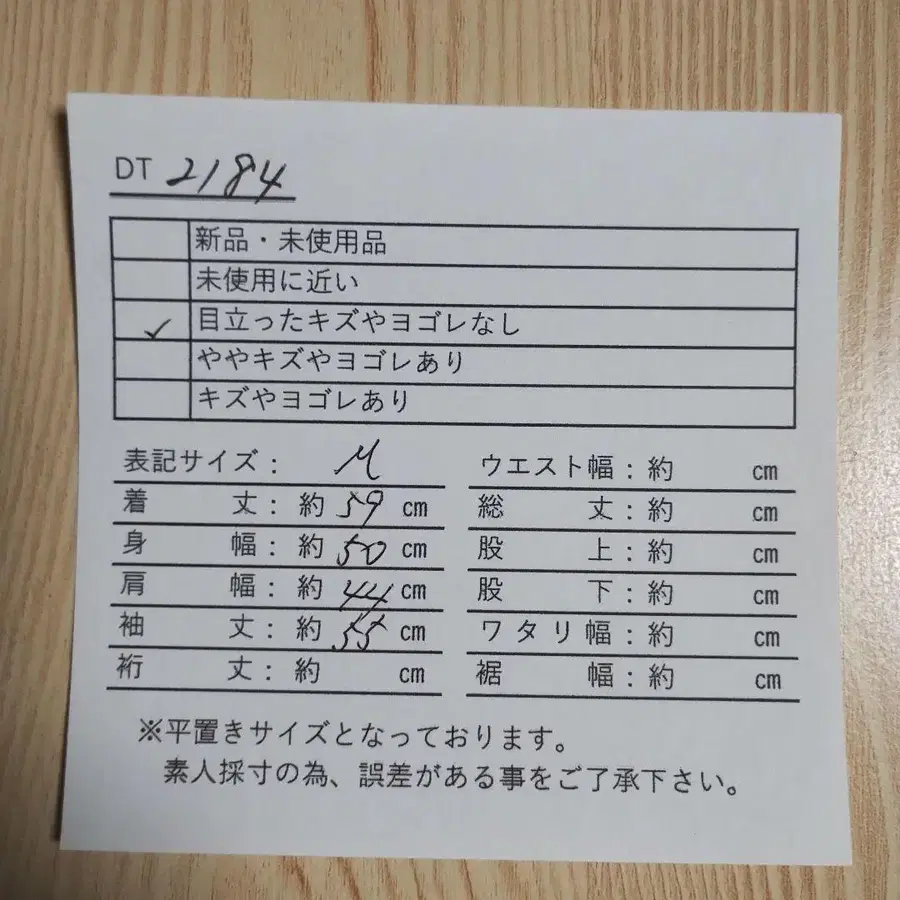 DT 2184
新品・未使用品
未使用に近い
✓ 目立ったキズやヨゴレなし
ややキズやヨゴレあり
キズやヨゴレあり
表記サイズ： M
着丈：約 59 cm
身幅：約 50 cm
肩幅：約 44 cm
袖丈：約 55 cm
裄丈：約 cm
ウエスト幅：約 cm
総丈：約 cm
股上：約 cm
股下：約 cm
ワタリ幅：約 cm
裾幅：約 cm
※平置きサイズとなっております。
素人採寸の為、誤差がある事をご了承下さい。